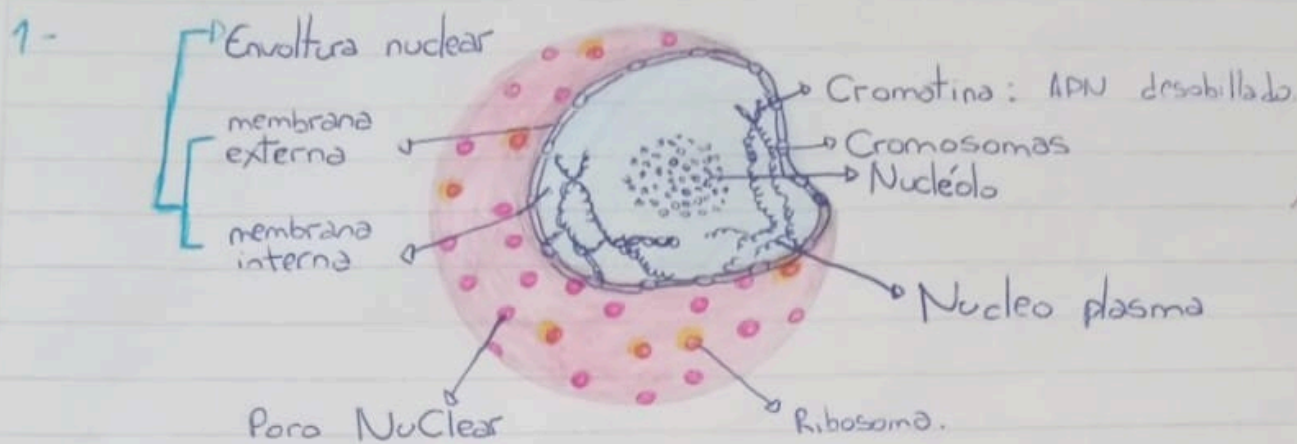 1-
Envoltura nuclear
membrana
externa
membrana
interna
Cromatina: ADN desobillado.
Cromosomas
Nucléolo
Nucleo plasma
Poro NuClear
Ribosoma.